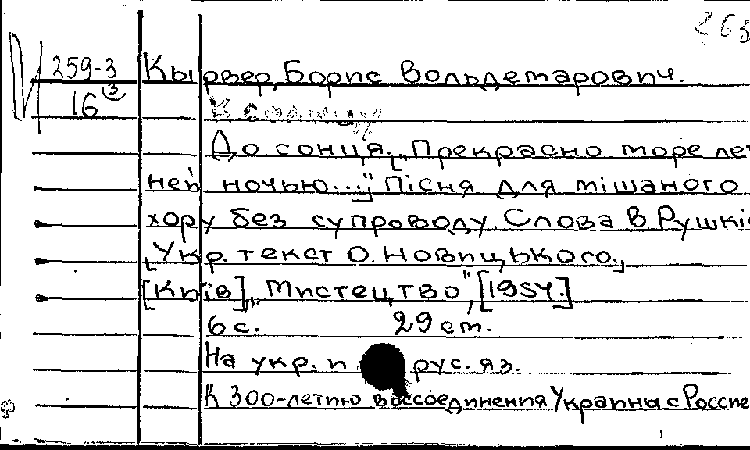 263
259-3 Кырвер, Борис Вольдемарович.
16(3) К солнцу
До сонця. „Прекрасно море лет
ней ночью...;" Пісня для мішаного
хору без супроводу. Слова В. Рушкіс
[Укр. текст О. Новицького.]
[Київ], „Мистецтво", [1954.]
6 с. 29 см.
На укр. и рус. яз.
К 300-летию воссоединения Украины с Россие